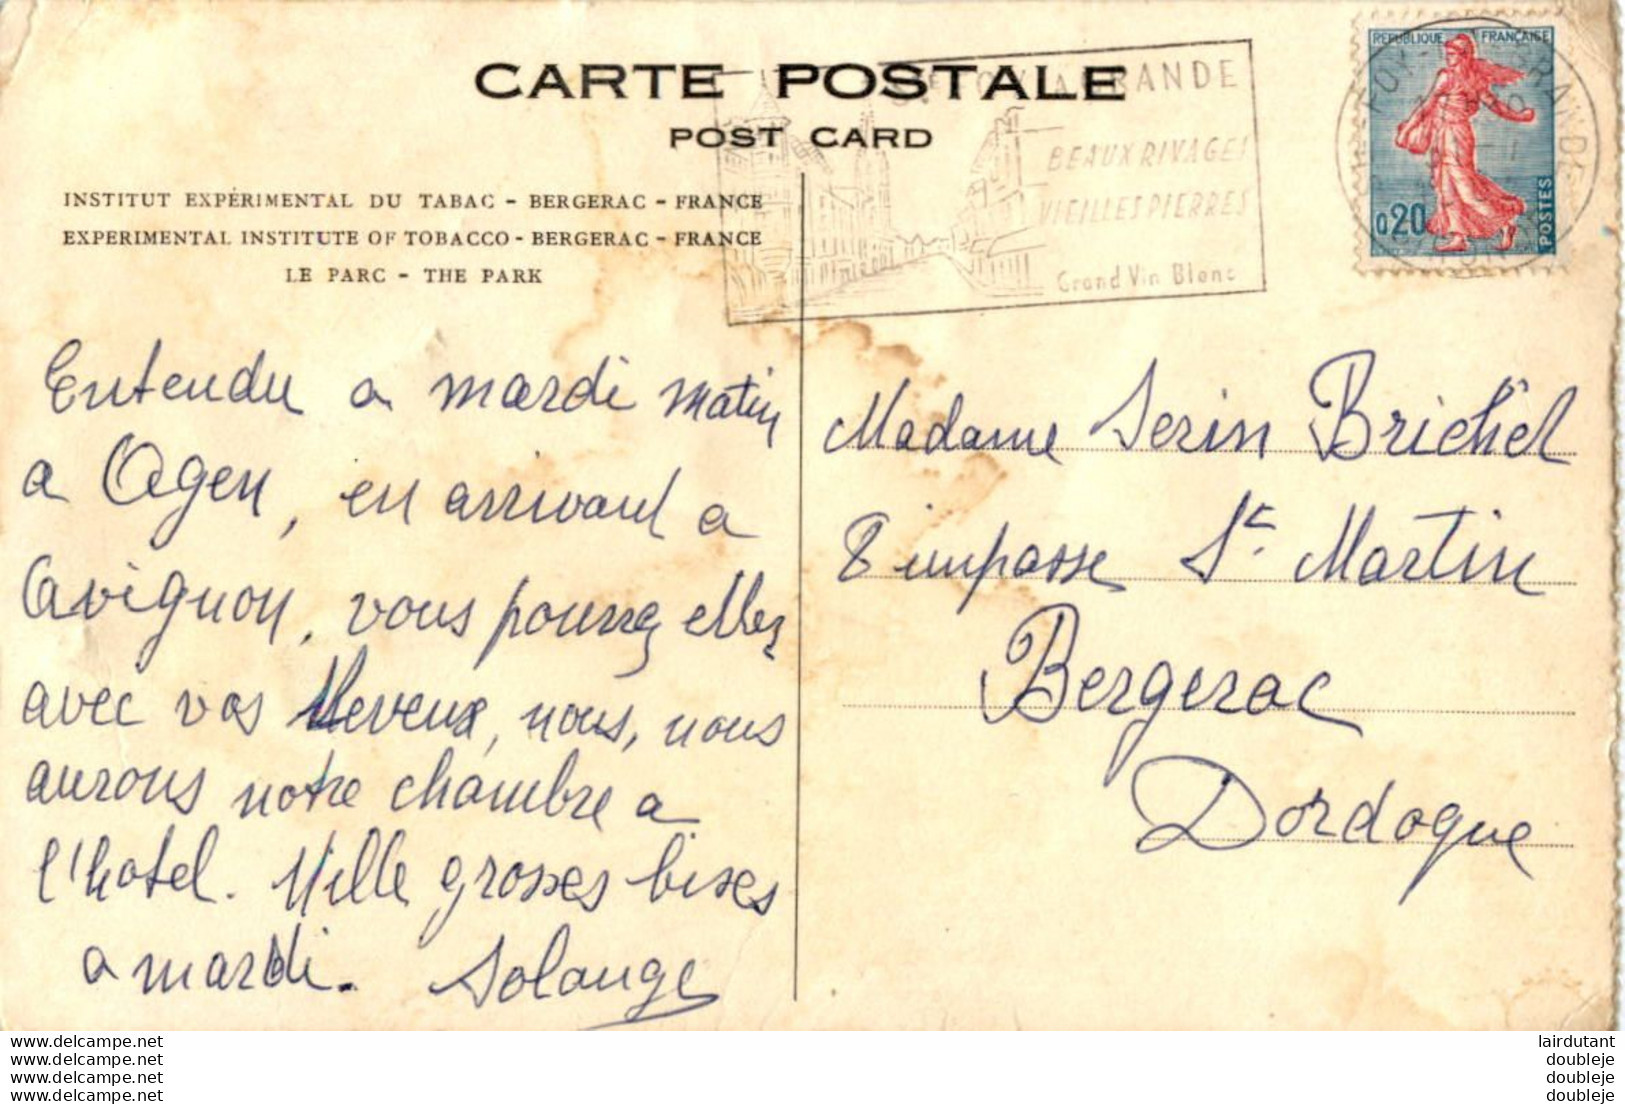 CARTE POSTALE
POST CARD
INSTITUT EXPÉRIMENTAL DU TABAC - BERGERAC - FRANCE
EXPERIMENTAL INSTITUTE OF TOBACCO - BERGERAC - FRANCE
LE PARC - THE PARK
GRANDE
BEAUX RIVAGES
VIEILLES PIERRES
Grand Vin Blanc
REPUBLIQUE FRANÇAISE
0,20
POSTES
Entendu a mardi matin
a Agen, en arrivant a
Avignon, vous pourrez
avec vos neveux, nous, nous
aurons notre chambre a
l'hotel. Mille grosses bises
a mardi. Solange
Madame Serin Brichel
8 impasse St. Martin
Bergerac
Dordogne
lairdutant
doubleje
doubleje
doubleje
www.delcampe.net
www.delcampe.net
www.delcampe.net
www.delcampe.net